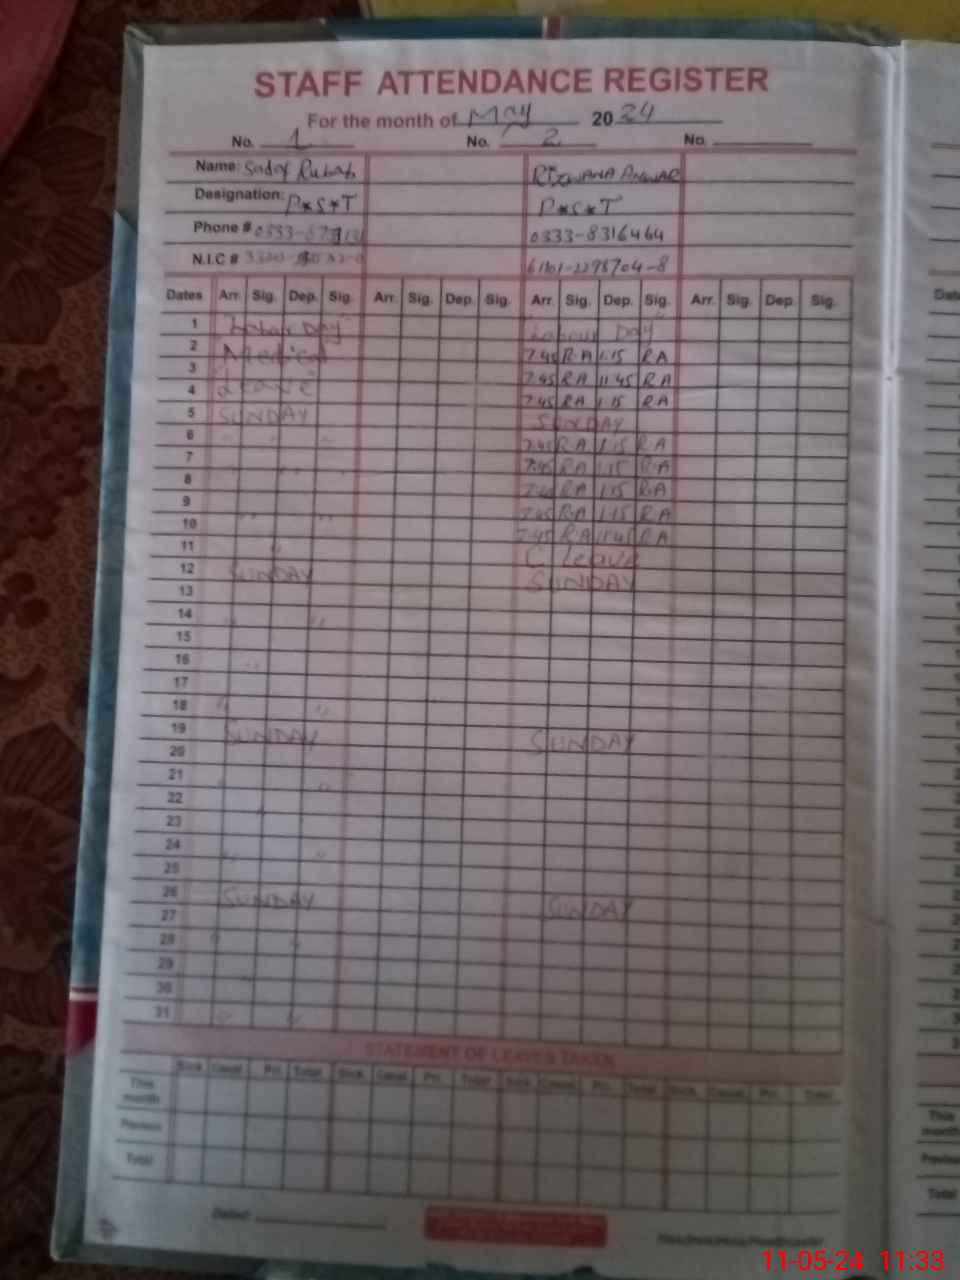 STAFF ATTENDANCE REGISTER
For the month of May 2024
No. 1 No. 2 No.
Name: Sadaf Rubab RIZWANA ANWAR
Designation: P*S*T P*S*T
Phone # 0333-8316464
N.I.C # 61101-2298704-8
Dates Arr. Sig. Dep. Sig. Arr. Sig. Dep. Sig. Arr. Sig. Dep. Sig. Arr. Sig. Dep. Sig.
1 "Labar Day" "Labour Day"
2 "Medical 7.45 R.A 1.15 RA
3 7.45 RA 11.45 RA
4 Leave" 7.45 RA 1.15 RA
5 SUNDAY SUNDAY
6 " " " 7.45 RA 1.15 R.A
7 7.45 RA 1.15 R.A
8 7.45 RA 1.15 R.A
9 7.45 RA 1.15 R.A
10 " " 7.45 R.A 11.45 RA
11 " C leave
12 SUNDAY SUNDAY
13
14 " "
15
16 "
17
18 " "
19 SUNDAY SUNDAY
20
21 " "
22
23
24 " "
25
26 SUNDAY SUNDAY
27
28 " "
29
30
31 " "
STATEMENT OF LEAVES TAKEN
Sick Casul Pri. Total Sick. Casul. Pri. Total Sick Casul. Pri. Total Sick. Casul. Pri. Total
This month
Previous
Total
Dated:
This month
Previous
Total
11-05-24 11:33